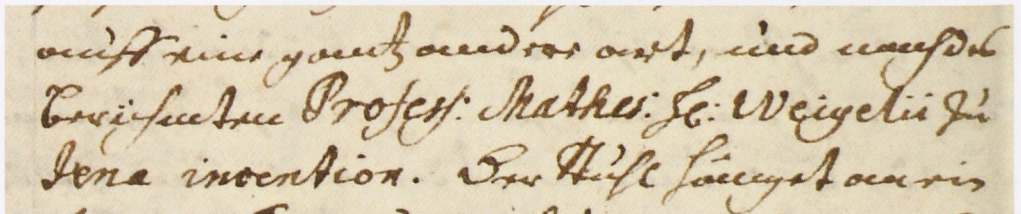 auff eine gantz andere art, und nach des
berühmten Profess: Mathes: H: Weigelii zu
Jena invention. Der Stuhl hänget an ein